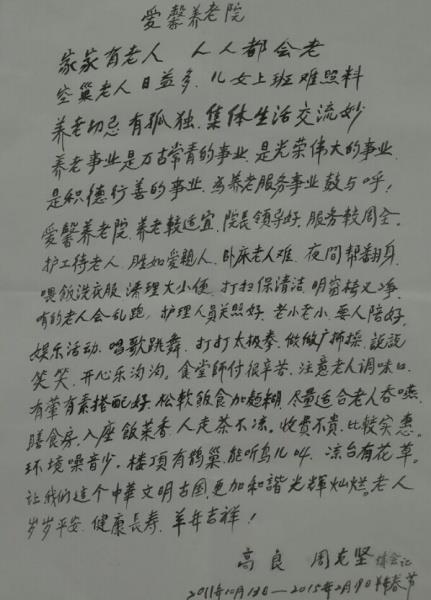 爱馨养老院
家家有老人 人人都会老
空巢老人日益多、儿女上班难照料
养老切忌有孤独、集体生活交流妙
养老事业是万古常青的事业、是光荣伟大的事业、
是积德行善的事业、为养老服务事业鼓与呼，
爱馨养老院、养老较适宜、院长领导好、服务较周全。
护工待老人、胜如爱亲人、卧床老人难、夜间帮翻身、
喂饭洗衣服、清理大小便、打扫保清洁、明窗椅又净、
有的老人会乱跑、护理人员关照好、老小老小、要人陪好、
娱乐活动、唱歌跳舞、打打太极拳、做做广播操、说说
笑笑、开心乐沟沟。食堂師付很辛苦、注意老人调味口、
有荤有素搭配好、松軟飯食加麵糊、尽量适合老人吞嚥、
膳食房、入座飯菜香、人走茶不冻。收费不貴、比较实惠。
环境噪音少、楼頂有鹊巢、能听鸟儿叫、凉台有花草。
让我们这个中華文明古国、更加和諧光辉灿烂。老人
岁岁平安、健康長寿、羊年吉祥！
高良 周克坚
2011年10月13日—2015年2月9日 春节